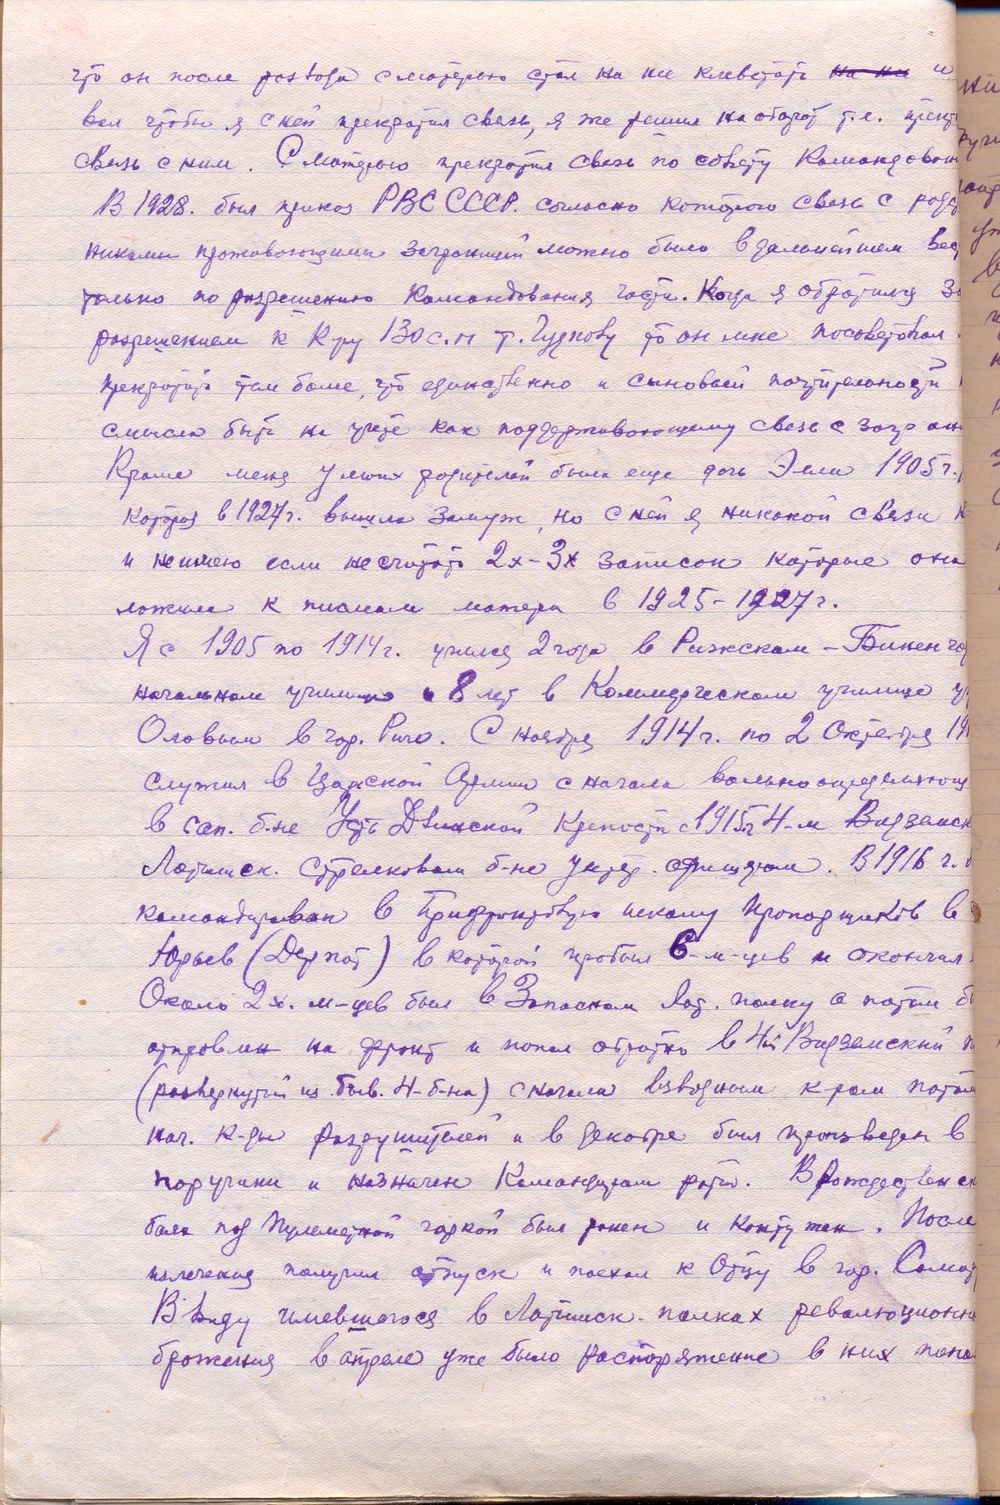 что он после развода с матерью стал на нее клеветать на не и
вал чтобы я с ней прекратил связь, я же решил наоборот т.е. прекр
связь с ним. С матерью прекратил связь по совету Командован
В 1928. был приказ РВС СССР. согласно которого связь с родст
никами проживающими заграницей можно было в дальнейшем вес
только по разрешению Командования части. Когда я обратился за
разрешением к К-ру 130 с.п т. то он мне посоветовал
прекратить тем более, что единственно и сыновьей почтительности
смысла быть на учете как поддерживающему связь с загран
Кроме меня у моих родителей была еще дочь Элли 1905 г.р
которая в 1927 г. вышла замуж, но с ней я никакой связи н
и не имею если несчитать 2х-3х записок которые она
ложила к письмам матери в 1925-1927 г.
Я с 1905 по 1914 г. учился 2 года в Рижском -
начальном училище и 8 лет в Коммерческом училище
в гор. Риге. С ноября 1914 г. по 2 Октября 19
служил в Царской Армии с начала вольноопределяющ
в сап. б-не Усть Двинской Крепости с 1915 г 4-м Видземск
Латышск. стрелковом б-не унтер. офицером. В 1916 г.
командирован в Прифронтовую школу прапорщиков в
Юрьев (Дерпат) в которой пробыл 6-м-цев и окончил
Около 2х. м-цев был в Запасном Лат. полку а потом б
отправлен на фронт и попал обратно в 4й Видземский п
(развернутый из быв. 4-б-на) с начала взводным к-ром потом
нач. к-ды разрушителей и в декабре был произведен в
поручики и назначен Командиром роты. В рождественск
боях под Пулеметной горкой был ранен и контужен. После
излечения получил отпуск и поехал к Отцу в гор. Самар
В виду имевшегося в Латышск. полках революционн
брожения в апреле уже было распоряжение в них